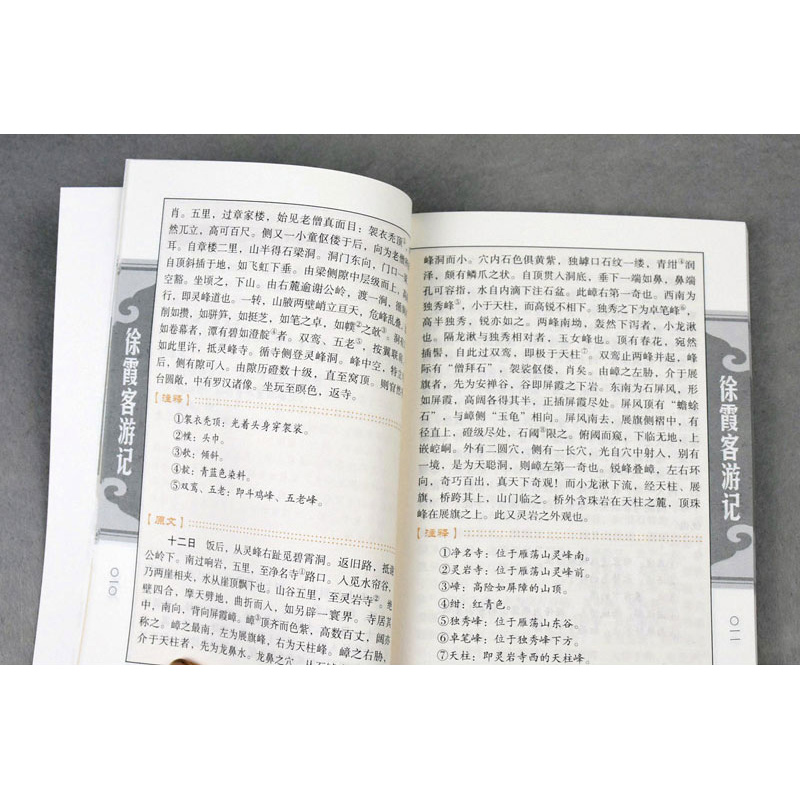 肖。五里，过章家楼，始见老僧真面目：袈衣秃顶
然兀立，高可百尺。侧又一小童伛偻于后，向为老僧
耳。自章楼二里，山半得石梁洞。洞门东向，门口一
自顶斜插于地，如飞虹下垂。由梁侧隙中层级而上，高
空豁。坐顷之，下山。由右麓逾谢公岭，渡一涧，循涧
行，即灵峰道也。一转，山腋两壁峭立亘天，危峰乱叠，
削如攒，如骈笋，如挺芝，如笔之卓，如幞②之欹③。洞
如卷幕者，潭有碧如澄靛④者。双鸾、五老⑤，接翼联
如此里许，抵灵峰寺。循寺侧登灵峰洞。峰中空，特立
后，侧有隙可入。由隙历磴数十级，直至窝顶，则窅然
台圆敞，中有罗汉诸像。坐玩至暝色，返寺。
【注释】
①袈衣秃顶：光着头身穿袈裟。
②幞：头巾。
③欹：倾斜。
④靛：青蓝色染料。
⑤双鸾、五老：即斗鸡峰、五老峰。
【原文】
十二日 饭后，从灵峰右趾觅碧霄洞。返旧路，抵
公岭下。南过响岩，五里，至净名寺①路口。入觅水帘谷，
乃两崖相夹，水从崖顶飘下也。山谷五里，至灵岩寺②。绝
壁四合，摩天劈地，曲折而入，如另辟一寰界。寺居其
中，南向，背向屏霞嶂。嶂③顶齐而色紫，高数百丈，阔亦
称之。嶂之最南，左为展旗峰，右为天柱峰。嶂之右胁
介于天柱者，先为龙鼻水。龙鼻之穴，从石
徐霞客游记
〇一〇
峰洞而小。穴内石色俱黄紫，独罅口石纹一缕，青绀④润
泽，颇有鳞爪之状。自顶贯入洞底，垂下一端如鼻，鼻端
孔可容指，水自内滴下注石盆。此嶂右第一奇也。西南为
独秀峰⑤，小于天柱，而高锐不相下。独秀之下为卓笔峰⑥，
高半独秀，锐亦如之。两峰南坳，轰然下泻者，小龙湫
也。隔龙湫与独秀相对者，玉女峰也。顶有春花，宛然
插髻，自此过双鸾，即极于天柱⑦。双鸾止两峰并起，峰
际有“僧拜石”，袈裟伛偻，肖矣。由嶂之左胁，介于展
旗者，先为安禅谷，谷即屏霞之下岩。东南为石屏风，形
如屏霞，高阔各得其半，正插屏霞尽处。屏风顶有“蟾蜍
石”，与嶂侧“玉龟”相向。屏风南去，展旗侧褶中，有
径直上，磴级尽处，石阈⑧限之。俯阈而窥，下临无地，上
嵌崆峒。外有二圆穴，侧有一长穴，光自穴中射入，别有
一境，是为天聪洞，则嶂左第一奇也。锐峰叠嶂，左右环
向，奇巧百出，真天下奇观！而小龙湫下流，经天柱、展
旗，桥跨其上，山门临之。桥外含珠岩在天柱之麓，顶珠
峰在展旗之上。此又灵岩之外观也。
【注释】
①净名寺：位于雁荡山灵峰南。
②灵岩寺：位于雁荡山灵峰前。
③嶂：高险如屏障的山顶。
④绀：红青色。
⑤独秀峰：位于雁荡山东谷。
⑥卓笔峰：位于独秀峰下方。
⑦天柱：即灵岩寺西的天柱峰。
徐霞客游记
〇一一